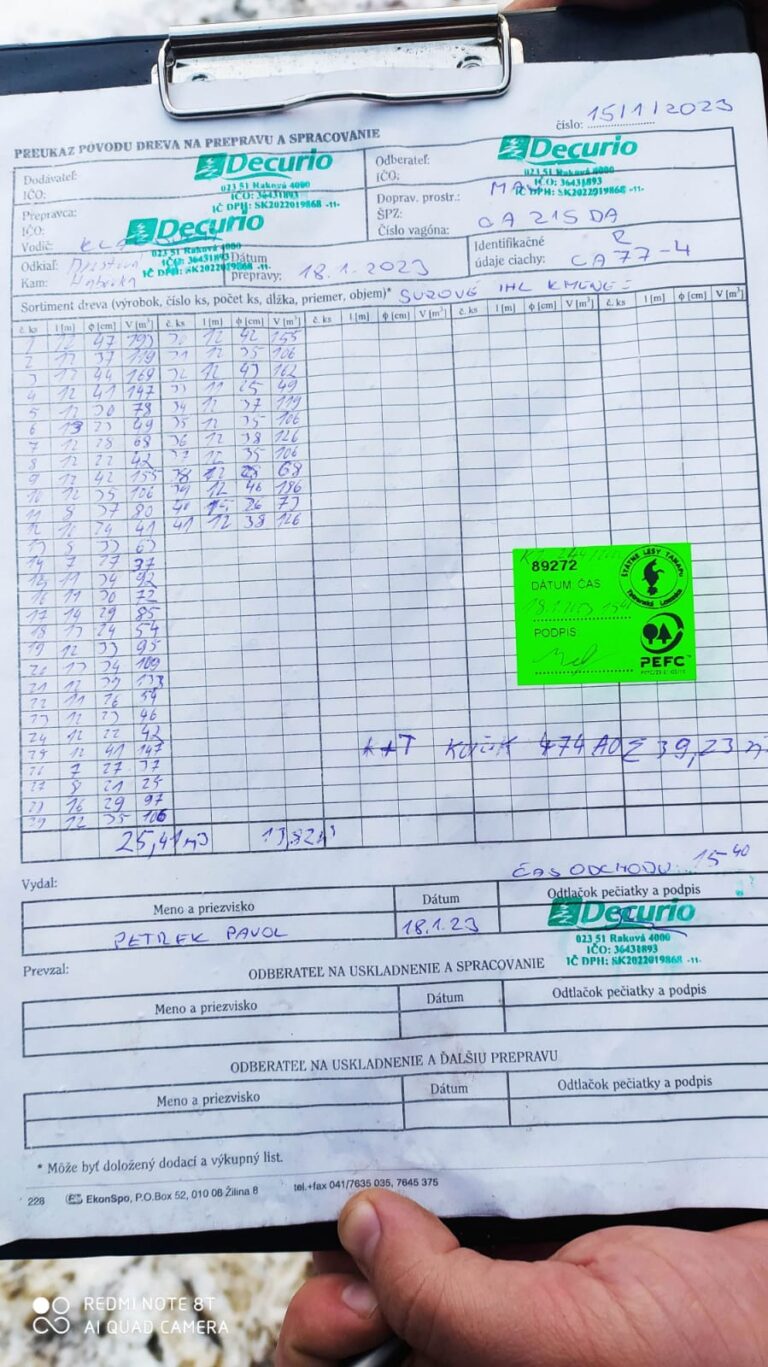 PREUKAZ PÔVODU DREVA NA PREPRAVU A SPRACOVANIE
číslo: 15/1/2023
Dodávateľ:
IČO:
Decurio
023 51 Raková 4000
IČO: 36431893
IČ DPH: SK2022019868 -11-
Odberateľ:
IČO:
Decurio
023 51 Raková 4000
IČO: 36431893
IČ DPH: SK2022019868 -11-
Prepravca:
IČO:
Vodič:
Decurio
023 51 Raková 4000
IČO: 36431893
IČ DPH: SK2022019868 -11-
Doprav. prostr.:
ŠPZ:
Číslo vagóna: CA 215 DA
Odkiaľ:
Kam:
Dátum
prepravy: 18.1.2023
Identifikačné
údaje ciachy: R
CA 77-4
Sortiment dreva (výrobok, číslo ks, počet ks, dĺžka, priemer, objem)*
č. ks l [m] ϕ [cm] V [m³] č. ks l [m] ϕ [cm] V [m³] č. ks l [m] ϕ [cm] V [m³] č. ks l [m] ϕ [cm] V [m³] č. ks l [m] ϕ [cm] V [m³]
1 12 47 193 30 12 42 155
2 12 37 119 31 12 35 106
3 12 44 169 32 12 43 162
4 12 41 147 33 11 25 49
5 12 30 78 34 12 37 119
6 13 23 49 35 12 35 106
7 12 28 68 36 12 38 126
8 12 22 42 37 12 35 106
9 12 42 155 38 12 28 68
10 12 35 106 39 12 46 186
11 8 37 80 40 26 73
12 24 41 41 12 38 126
13 33 63
14 7 27 37
15 11 34 92
16 11 30 72
17 14 29 85
18 13 24 54
19 12 33 95
20 13 34 109
21 12 39 133
22 11 26 54
23 12 23 46
24 12 22 42
25 12 41 147
26 7 27 37
27 8 21 25
28 16 29 97
29 12 35 106
89272
DÁTUM ČAS
PODPIS:
ŠTÁTNE LESY TANAPU
Tatranská Lomnica
PEFC
474 Σ 39,23
25,41 m3 13,82 m3
ČAS ODCHODU: 15 40
Vydal:
Meno a priezvisko Dátum Odtlačok pečiatky a podpis
PETREK PAVOL 18.1.23
Decurio
023 51 Raková 4000
IČO: 36431893
IČ DPH: SK2022019868 -11-
Prevzal:
ODBERATEĽ NA USKLADNENIE A SPRACOVANIE
Meno a priezvisko Dátum Odtlačok pečiatky a podpis
ODBERATEĽ NA USKLADNENIE A ĎALŠIU PREPRAVU
Meno a priezvisko Dátum Odtlačok pečiatky a podpis
* Môže byť doložený dodací a výkupný list.
228 EkonSpo, P.O.Box 52, 010 08 Žilina 8 tel.+fax 041/7635 035, 7645 375
REDMI NOTE 8T
AI QUAD CAMERA